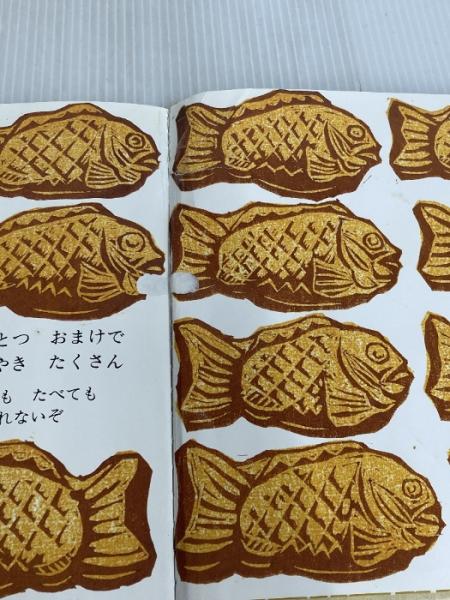 とつ おまけで
やき たくさん
も たべても
れないぞ